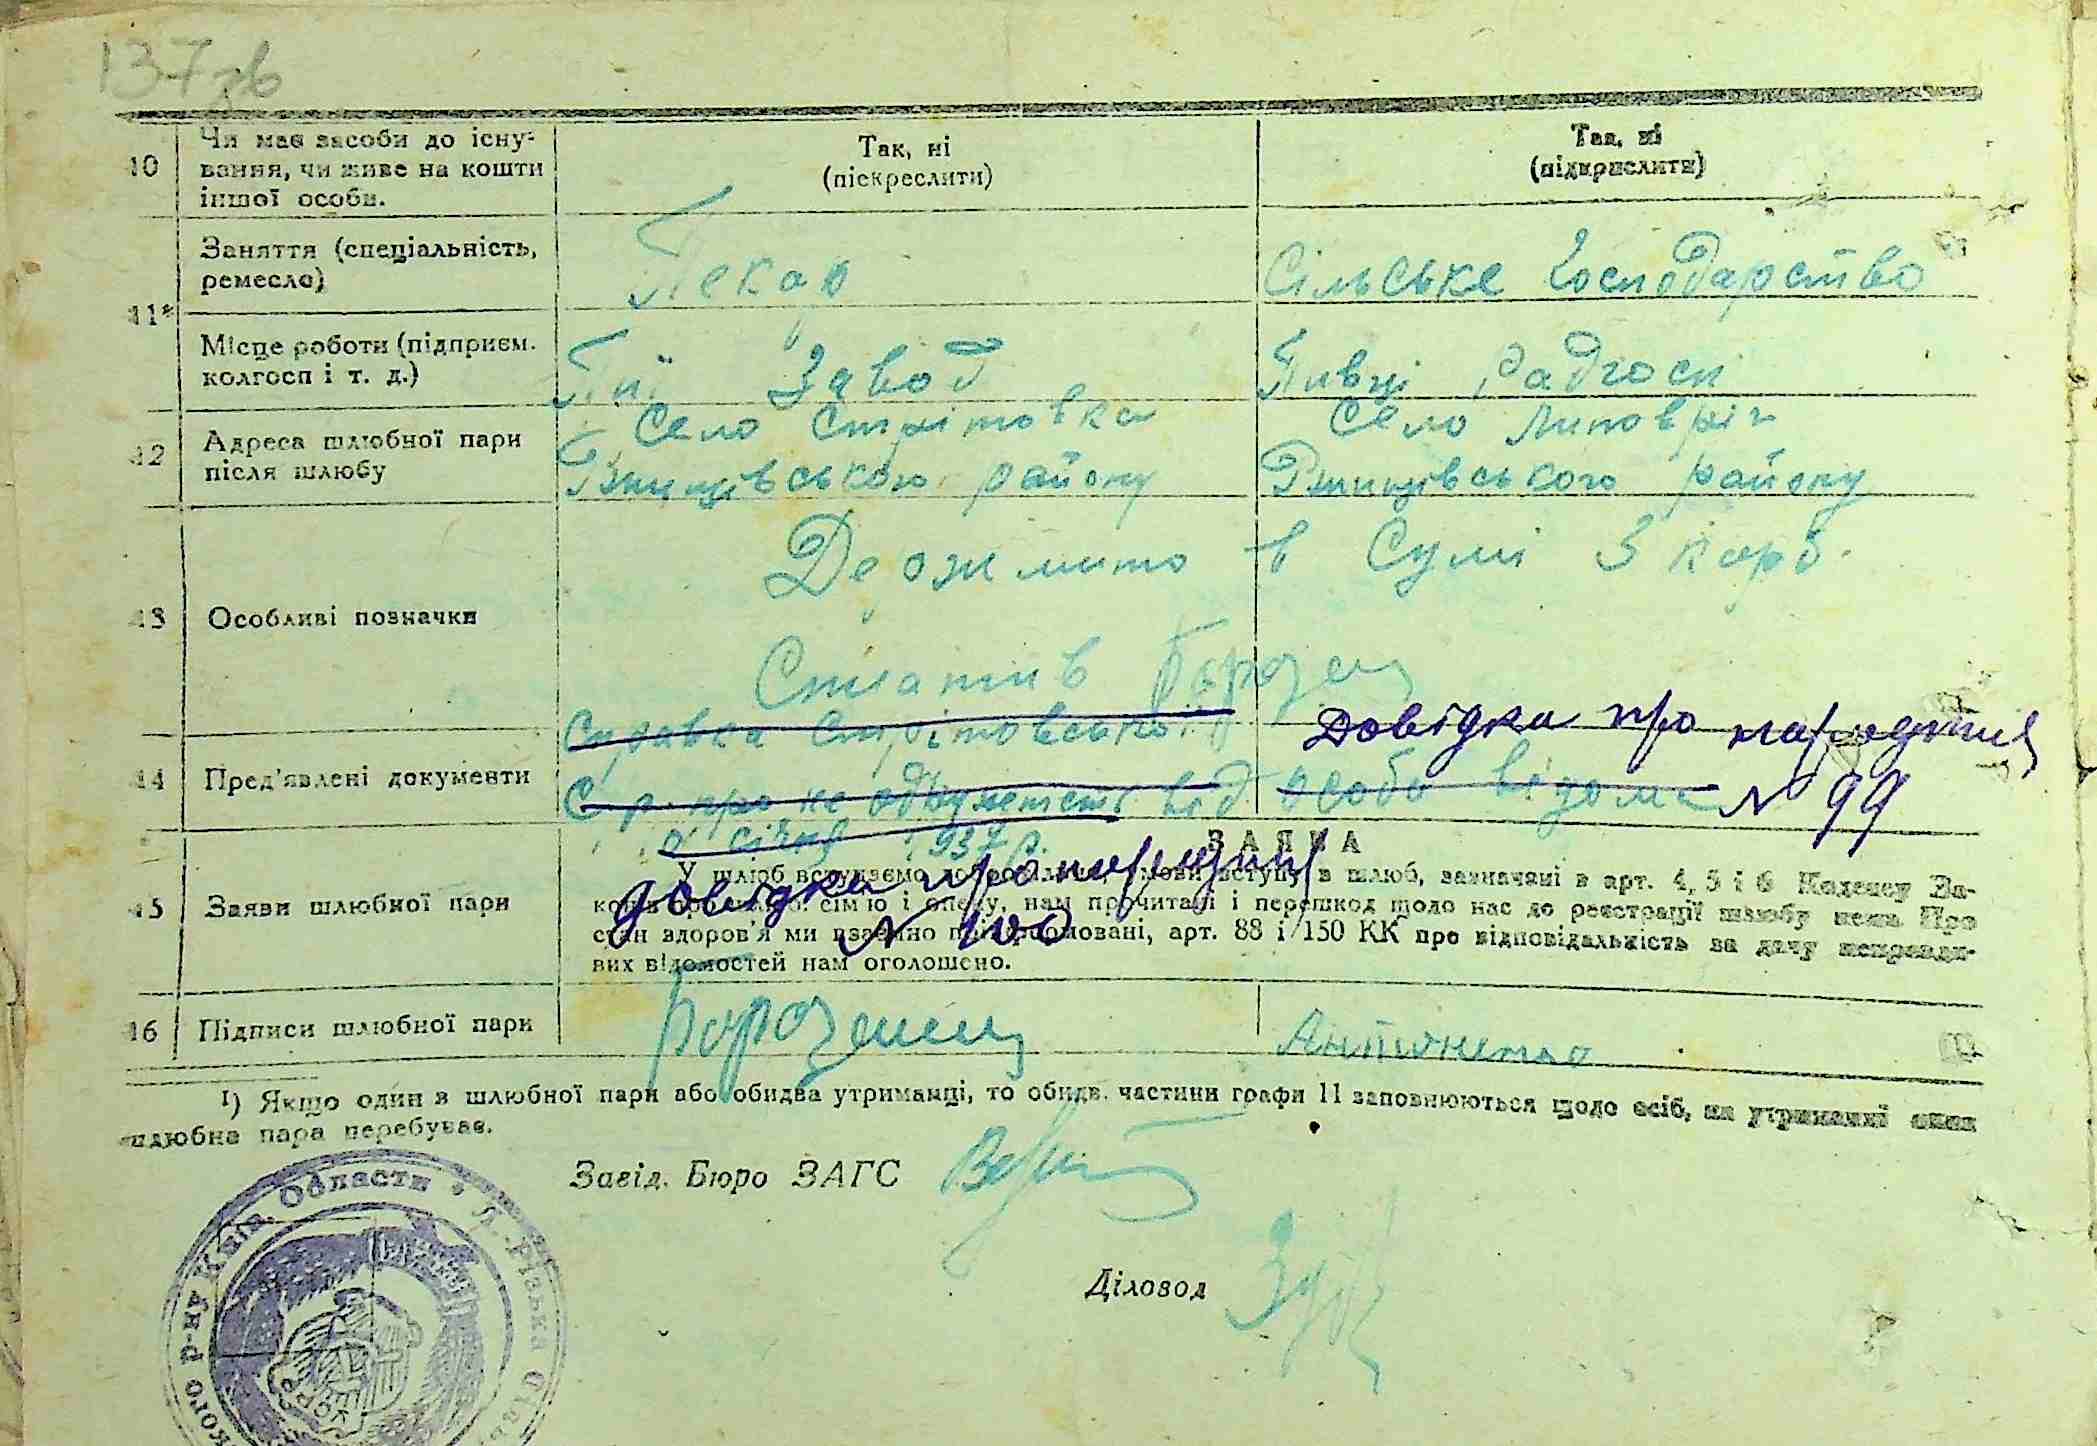 137 зв
10 Чи має засоби до існу-
вання, чи живе на кошти
іншої особи.
Так, ні
(піскреслити)
Так, ні
(підкреслити)
11*
Заняття (спеціальність,
ремесло)
Пекар
Сільське Господарство
Місце роботи (підприєм.
колгосп і т. д.)
Завод
Пивці Радгосп
12 Адреса шлюбної пари
після шлюбу
Село Стрітовка
Ржищівського району
Село Липовріг
Ржищівського району
13 Особливі позначки
Держмито в Сумі 3 карб.
Сплатив
14 Пред'явлені документи
Справка Стрітовської
Довідка про народжиня
С/р. про не від особо відома № 99
січня 1937 р.
довідка про народжиня
№ 100
15 Заяви шлюбної пари
ЗАЯВА
У шлюб вступаємо добровільно, умови вступу в шлюб, зазначені в арт. 4, 5 і 6 Кодексу За-
конів про сім'ю і опеку, нам прочитані і перешкод щодо нас до реєстрації шлюбу нема. Про
стан здоров'я ми взаємно поінформовані, арт. 88 і 150 КК про відповідальність за дачу неправди-
вих відомостей нам оголошено.
16 Підписи шлюбної пари
Антоненко
1) Якщо один в шлюбної пари або обидва утриманці, то обидв. частини графи 11 заповнюються щодо осіб, на утриманні яких
шлюбна пара перебуває.
Завід. Бюро ЗАГС
Діловод
р-ну Київ. Области • Л.-Різька Сіль